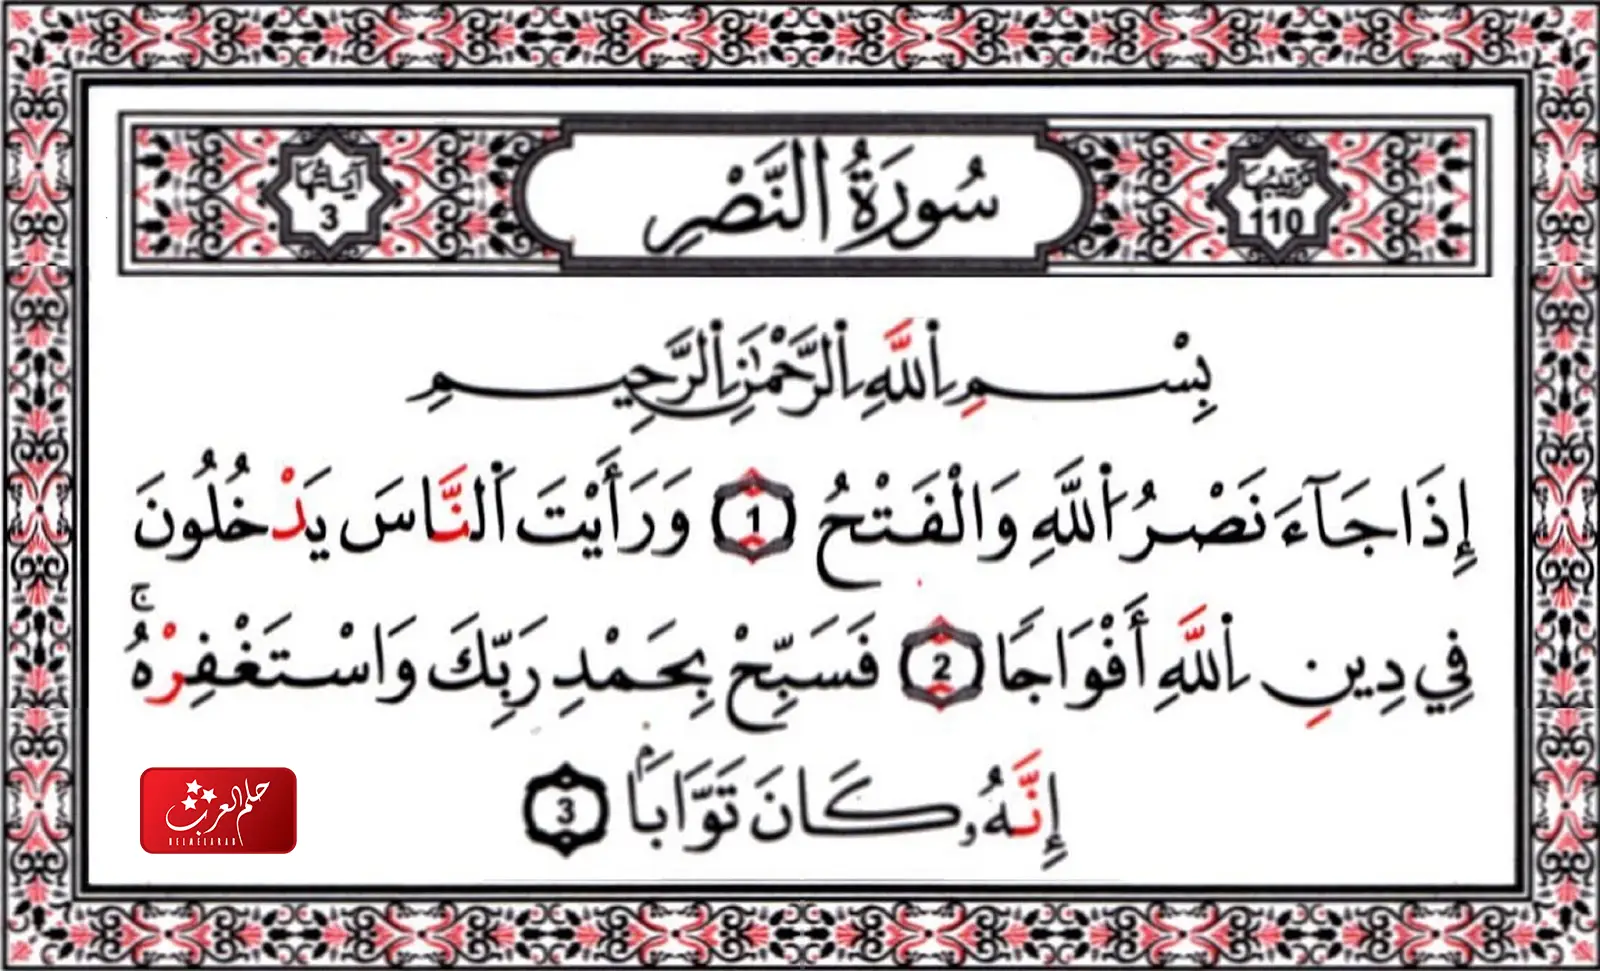 ترتيبها
110
سُورَةُ النَّصْرِ
آياتها
3
بِسْمِ اللَّهِ الرَّحْمَٰنِ الرَّحِيمِ
إِذَا جَآءَ نَصْرُ اللَّهِ وَالْفَتْحُ 1 وَرَأَيْتَ النَّاسَ يَدْخُلُونَ
فِي دِينِ اللَّهِ أَفْوَاجًا 2 فَسَبِّحْ بِحَمْدِ رَبِّكَ وَاسْتَغْفِرْهُ ۚ
إِنَّهُۥ كَانَ تَوَّابَۢا 3
حلم العرب
HELMELARAB